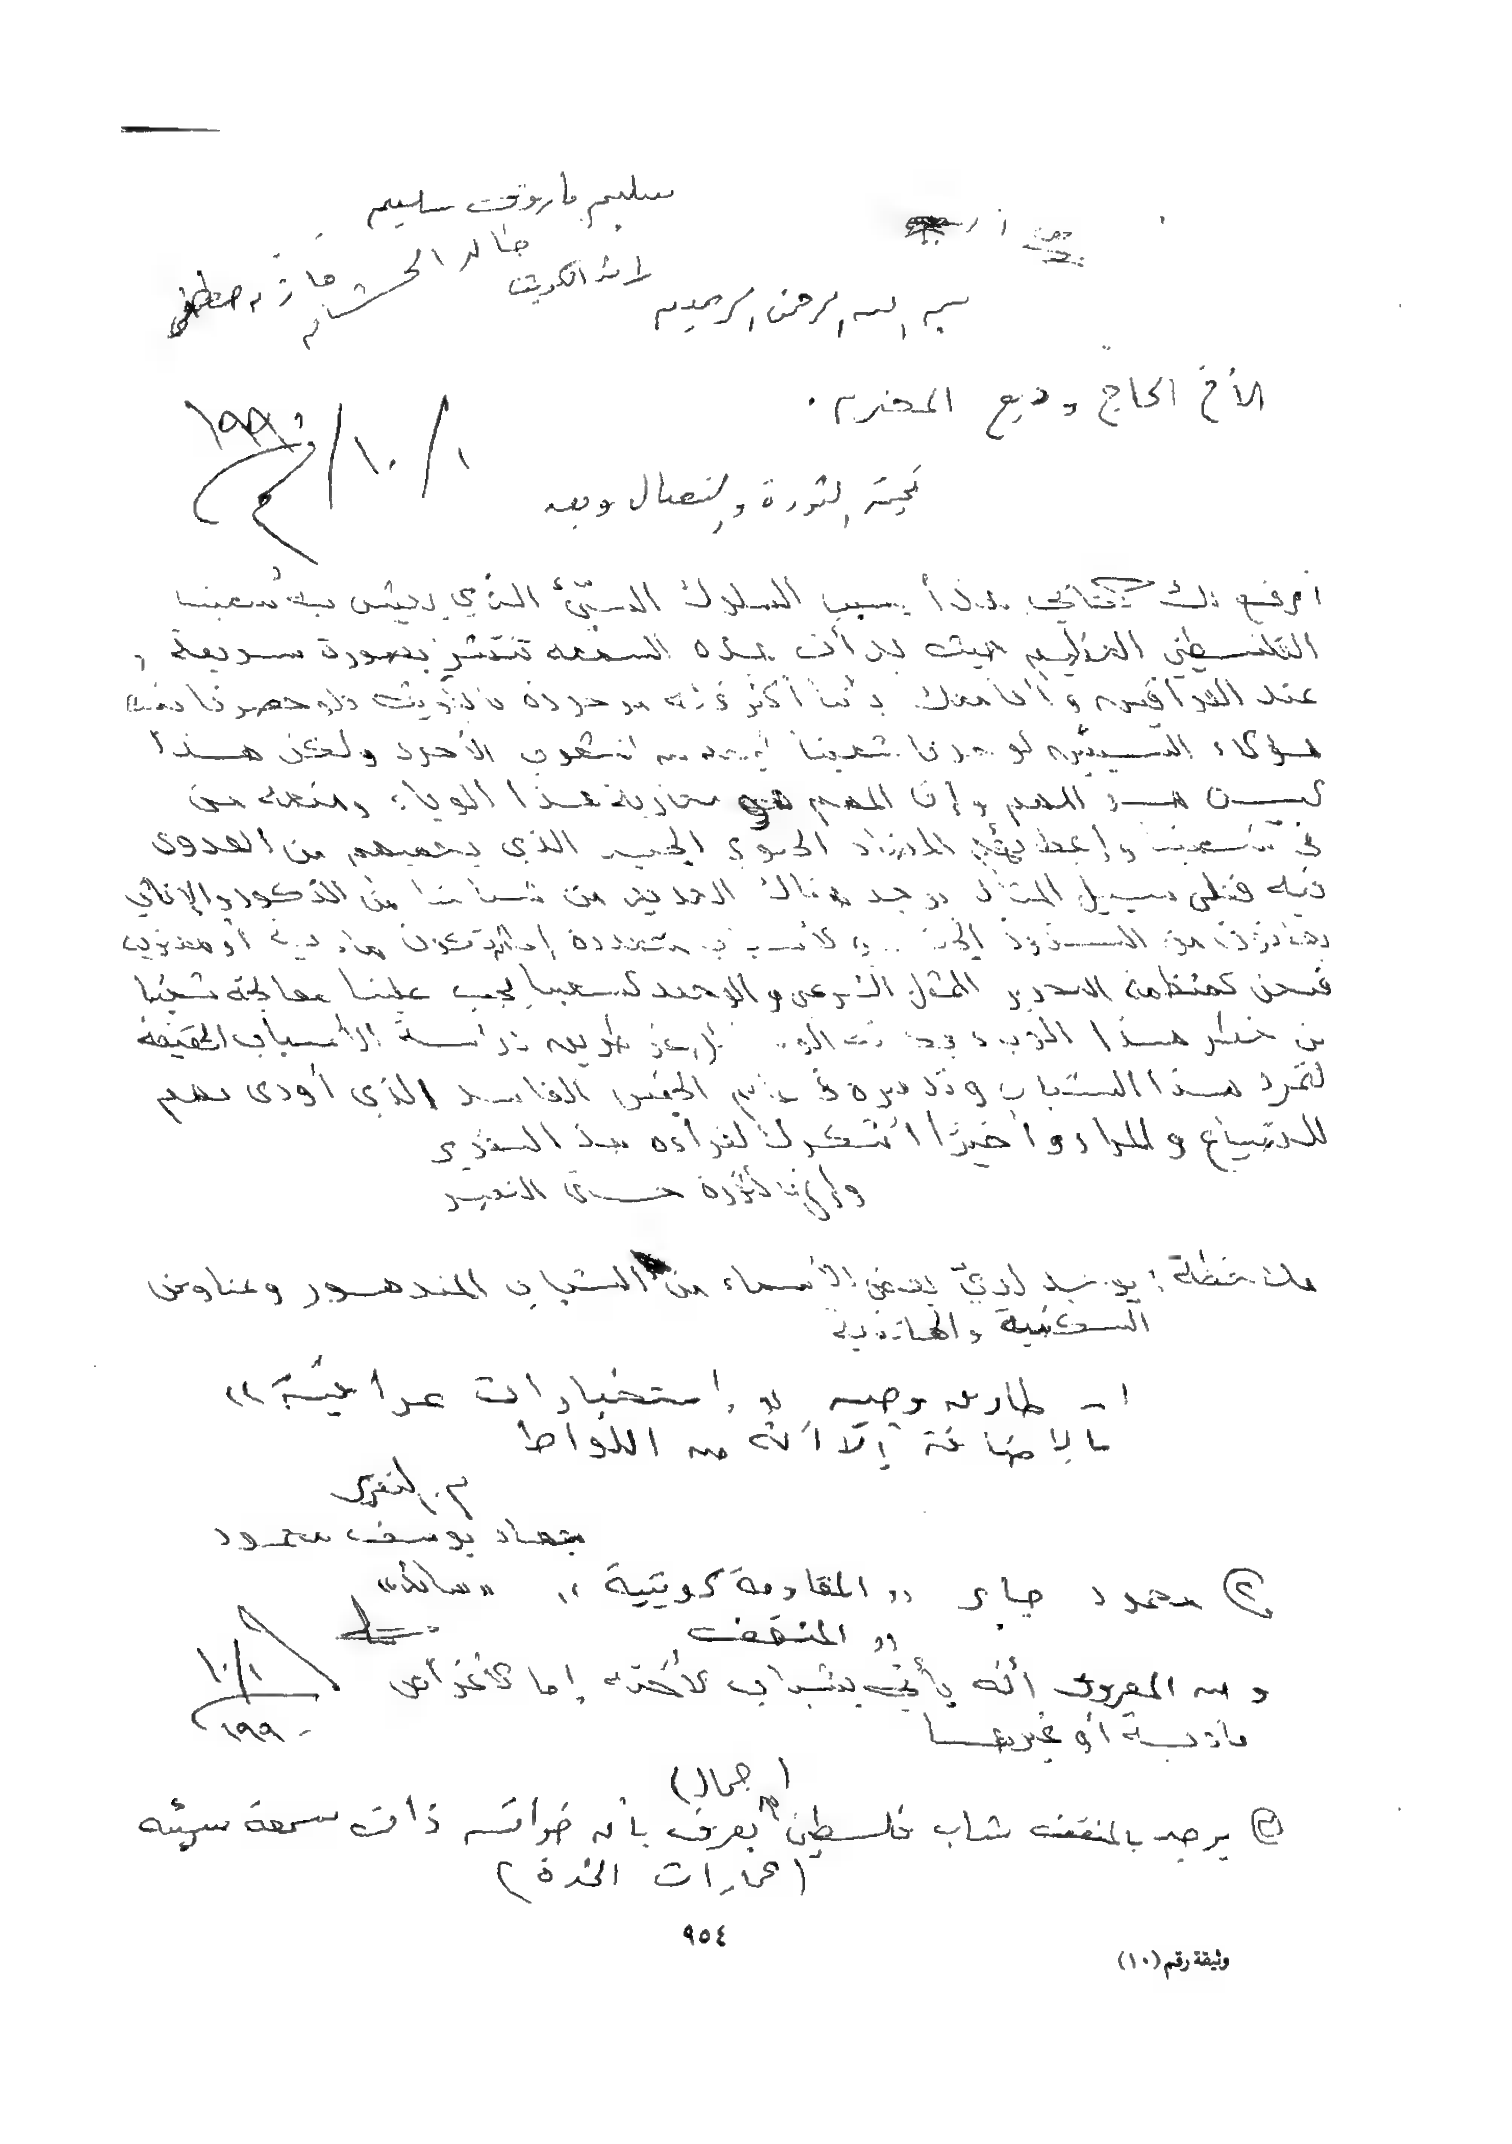 سليم فاروق سليم
خالد الحشام
مازن مصطفى
بسم الله الرحمن الرحيم
الأخ الحاج وديع المحترم .
١ / ١٠ / ١٩٩٠ م
تحية الثورة والنضال وبعد
أرفع لك كتابي هذا بسبب السلوك السيّئ الذي يعيش به شعبنا
الفلسطيني العظيم حيث بدأت هذه السمعه تنتشر بصورة سريعة ,
عند العراقيين و بأننا أكثر فئه موجودة ولو حصرنا
هؤلاء السيئين لوجدنا شعبنا من الشعوب الأخرى ولكن هذا
ليس هو المهم وإن المهم هو محاربة هذا الوباء ومنعه من
شعبنا وإعطائهم المضاد الحيوي الجيد الذي يحميهم من العدوى
فيه فعلى سبيل المثال يوجد هناك العديد من شبابنا من الذكور والإناث
يعانون من الشذوذ الجنسي لأسباب متعددة إما أن تكون مادية أو معنوية
فنحن كمنظمة التحرير الممثل الشرعي والوحيد لشعبنا يجب علينا معالجة شعبنا
من خطر هذا الوباء عن طريق دراسة الأسباب الحقيقة
لتمرد هذا الشباب وتدميره في عالم الجنس الفاسد الذي أودى بهم
للضياع وأخيرًا أشكرك لقراءه هذا التقرير
وإنها لثورة حتى النصر
ملاحظة : يوجد لديّ بعض الأسماء من الشباب المتدهور وعناوين
السكنية والهاتفية
١ - طارق وجيه « إستخبارات عراقيّة »
بالإضافة إلا أنّه من اللواط
م . التقرير
جهاد يوسف محمود
② محمود جابر « المقاومة كويتية » « سالم »
« المنقف
ومن المعروف أنه يأتي بشباب لأخته إما لأغراض
مادية أو غيرها
١ / ١٠
١٩٩٠
( جمال )
③ يوجد بالمنقف شاب فلسطيني يعرف بأن خواته ذات سمعة سيئه
( عمارات )
٩٥٤
وثيقة رقم (١٠)